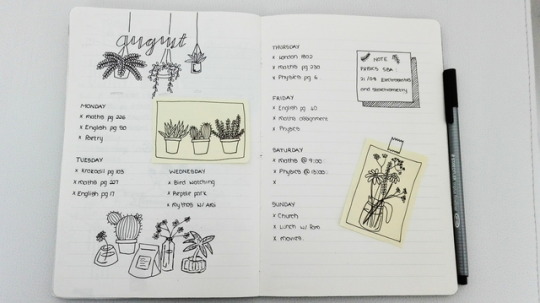 august
MONDAY
x maths pg 226
x English pg 90
x Poetry
TUESDAY
x Afrikaans pg 103
x maths pg 227
x English pg 17
WEDNESDAY
x Bird watching
x Reptile park
x Mythos w/
THURSDAY
x London 1802
x maths pg 230
x Physics pg 6
FRIDAY
x English pg 60
x Maths assignment
x Physics
SATURDAY
x Maths @ 9:00
x Physics @ 13:00
x
SUNDAY
x Church
x Lunch w/ Fam
x movies.
NOTE
PHYSICS SBA
31/08
and stoichiometry